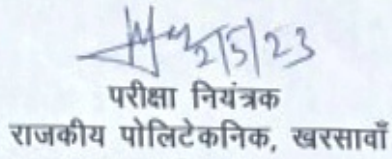 2/5/23
परीक्षा नियंत्रक
राजकीय पोलिटेकनिक, खरसावाँ